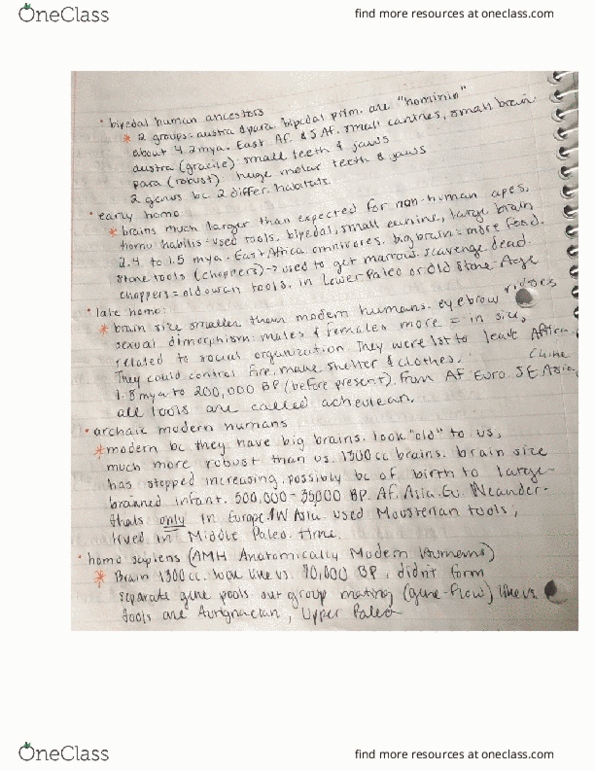 OneClass
find more resources at oneclass.com
• bipedal human ancestors
* 2 groups = austra & para. bipedal prim. are "hominin"
about 4.2 mya. East Af. & S. Af. small canines, small brain
austra (gracile) - small teeth & jaws
para (robust) huge molar teeth & jaws
2 genus bc 2 differ. habitats.
• early homo:
* brains much larger than expected for non-human apes,
homo habilis = used tools, bipedal, small canine, large brain
2.4 to 1.5 mya. East Africa. omnivores. big brain = more food.
stone tools (choppers) → used to get marrow. scavenge dead.
choppers = oldowan tools. in Lower Paleo or Old Stone Age
• late homo:
* brain size smaller than modern humans. eyebrow ridges
sexual dimorphism: males & females more = in size,
related to social organization. They were 1st to leave Africa.
They could control fire, make shelter & clothes.
1.8 mya to 200,000 BP (before present). From Af Euro. SE Asia, China
all tools are called acheulean.
• archaic modern humans
* modern bc they have big brains. look "old" to us,
much more robust than us. 1300 cc brains. brain size
has stopped increasing possibly bc of birth to large-
brained infant. 500,000 - 35,000 BP. Af. Asia. Eu. Neander-
thals only in Europe/W Asia. used Mousterian tools,
lived in Middle Paleo. time.
• homo sapiens (AMH Anatomically Modern Humans)
* Brain 1300 cc. look like us. 90,000 BP, didn't form
separate gene pools. out group mating (gene-flow) like us
tools are Aurignacian, Upper Paleo
OneClass
find more resources at oneclass.com